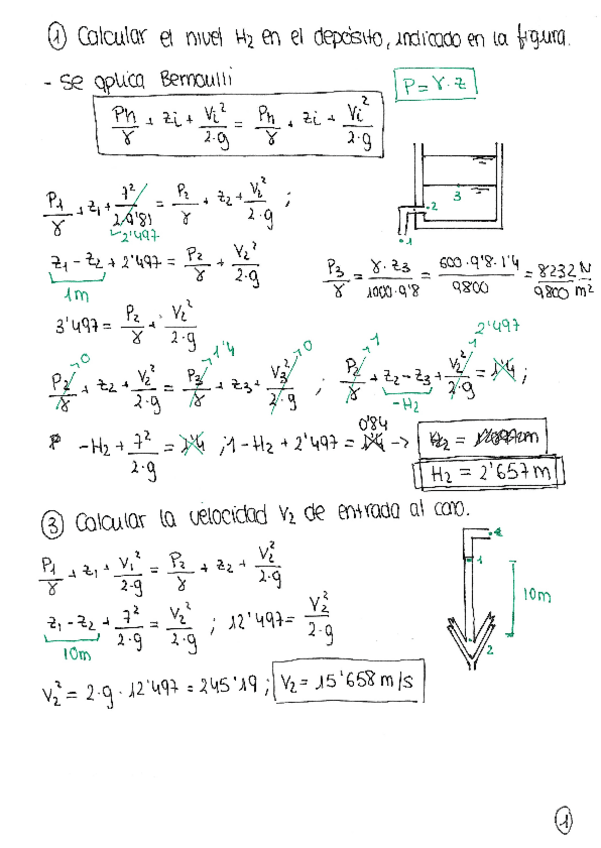 ① Calcular el nivel H₂ en el depósito, indicado en la figura.
- se aplica Bernoulli
P = γ · z
Pn/γ + zi + Vi²/2·g = Pn/γ + zi + Vi²/2·g
P₁/γ + z₁ + 7²/2·9'81 = P₂/γ + z₂ + V₂²/2·g ;
2'497
z₁ - z₂ + 2'497 = P₂/γ + V₂²/2·g
1m
P₃/γ = γ·z₃/1000·9'8 = 600·9'8·1'4/9800 = 8232/9800 N/m²
3'497 = P₂/γ + V₂²/2·g
P₂/γ + z₂ + V₂²/2·g = P₃/γ + z₃ + V₃²/2·g ; P₂/γ + z₂ - z₃ + V₂²/2·g = 1'4 ;
0 1'4 0 1 2'497
-H₂
-H₂ + 7²/2·g = 1'4 ; 1 - H₂ + 2'497 = 1'4 -> H₂ =
0'84
H₂ = 2'657 m
③ Calcular la velocidad V₂ de entrada al cono.
P₁/γ + z₁ + V₁²/2·g = P₂/γ + z₂ + V₂²/2·g
z₁ - z₂ + 7²/2·g = V₂²/2·g ; 12'497 = V₂²/2·g
10m
V₂² = 2·g·12'497 = 245'19 ; V₂ = 15'658 m/s
3
2
1
1
10m
2
①